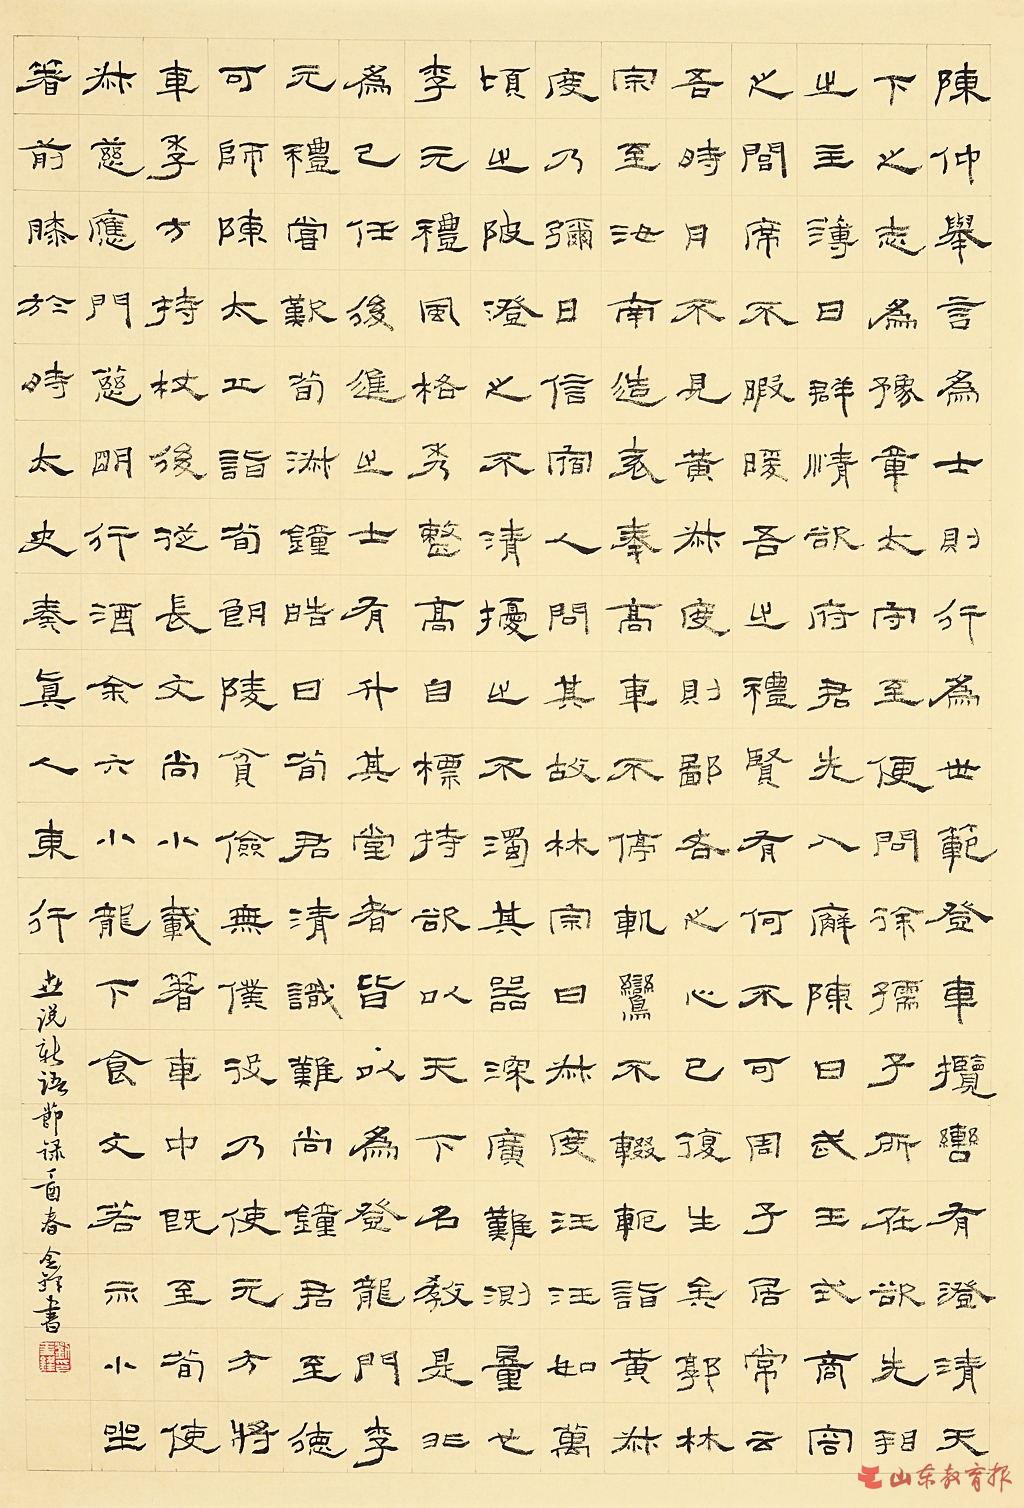 陳仲舉言為士則行為世範登車攬轡有澄清天
下之志為豫章太守至便問徐孺子所在欲先看
之主簿曰群情欲府君先入廨陳曰武王式商容
之閭席不暇暖吾之禮賢有何不可周子居常云
吾時月不見黃叔度則鄙吝之心已復生矣郭林
宗至汝南造袁奉高車不停軌鸞不輟軛詣黃叔
度乃彌日信宿人問其故林宗曰叔度汪汪如萬
頃之陂澄之不清擾之不濁其器深廣難測量也
李元禮風格秀整高自標持欲以天下名教是非
為己任後進之士有升其堂者皆以為登龍門李
元禮嘗歎荀淑鐘皓曰荀君清識難尚鐘君至德
可師陳太丘詣荀朗陵貧儉無僕役乃使元方將
車季方持杖後從長文尚小載著車中既至荀使
叔慈應門慈明行酒余六小龍下食文若亦小坐
著前膝於時太史奏真人東行
世说新语節録丁酉春書
山东教育报